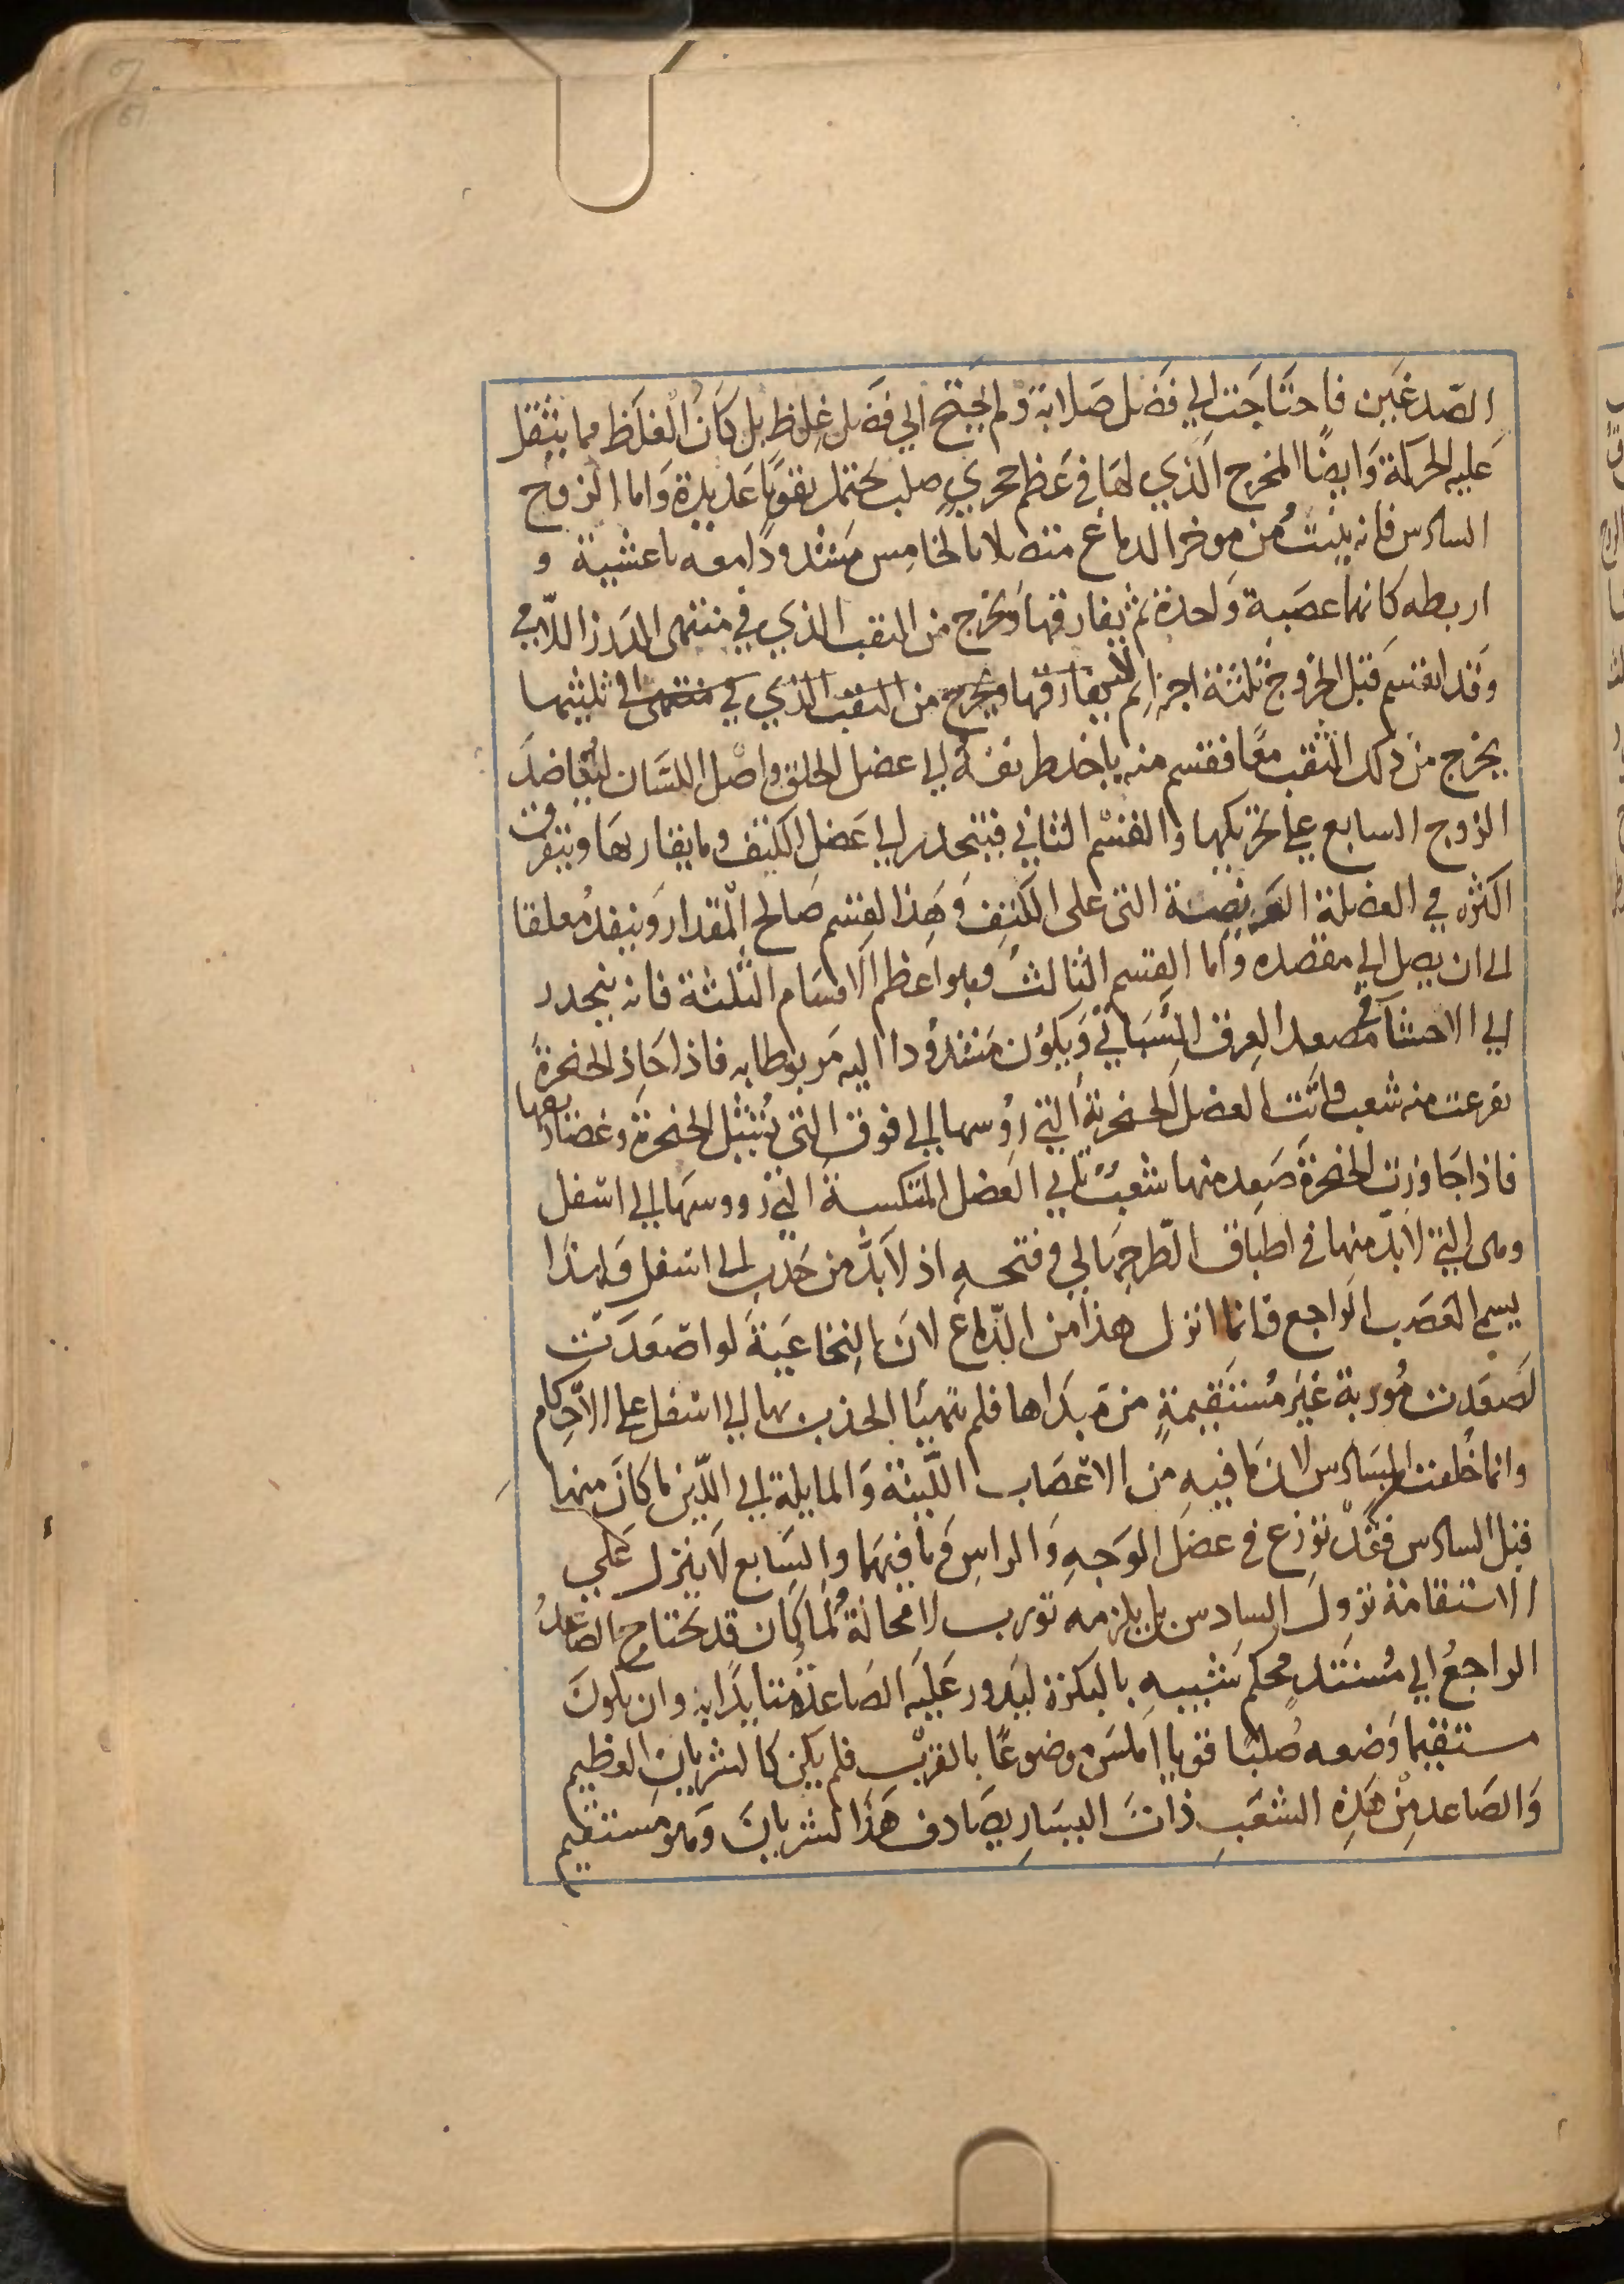 الصّدغين فاحتاجت الي فضل صلابة ولم يحتج الي فضل غلظ بل كان الغلظ مما يثقل
عليه الحركة وايضًا المخرج الذي لها في عظم حجري صلب يحتمل ثقوبًا عديدة واما الزوج
السادس فانه ينبت من موخر الدماغ متصلا بالخامس مشدودًا معه باغشية و
اربطه كانها عصبة واحدة ثم يفارقها ويخرج من الثقب الذي في منتهى الدرز اللامي
وقد انقسم قبل الخروج ثلثة اجزا ثم يفارقها ويخرج من الثقب الذي في منتهى في ثلثيها
يخرج من ذلك الثقب معًا فقسم منه ياخذ طريقه الي عضل الحلق واصل اللسان ليعاضد
الزوج السابع علي تحريكها والقسم الثاني فينحدر الي عضل الكتف وما يقاربها ويتفرق
اكثره في العضلة العريضة التي على الكتف وهذا القسم صالح المقدار وينفد معلقا
الى ان يصل الي مقصده واما القسم الثالث وهو اعظم الاقسام الثلثة فانه ينحدر
الي الاحشا في مصعد العرق السباتي ويكون مشدودا اليه مربوطا به فاذا حاذ الحنجرة
تفرعت منه شعب واتت العضل الحنجرية التي رؤسها الي فوق التي تشيل الحنجرة وغضاريفها
فاذا جاوزت الحنجرة صعد منها شعب تاتي العضل المتنكسة التي رووسها الي اسفل
وهى التي لابدّ منها في اطباق الطرجهالي وفتحه اذ لابدّ من جذب الى اسفل ولهذا
يسمي العصب الراجع وانما انزل هذا من الدّماغ لان النخاعية لو اصعدت
لصعدت موربة غير مستقيمة من مبداها فلم يتهيا الجذب بها الي اسفل علي الاحكام
وانما خلقت السادس لان ما فيه من الاعصاب اللينة والمايلة الي اللّين ما كان منها
قبل السادس فقد توزع في عضل الوجه والراس وما فيهما والسابع لا ينزل علي
الاستقامة نزول السادس بل يلزمه تورب لا محالة ولما كان قد يحتاج الصّاعدُ
الراجعُ الي مستند محكم شبيه بالبكرة ليدور عليه الصاعد متايدا به وان يكون
مستقيما وضعه صلبًا قويا املس موضوعًا بالقرب فلم يكن كالشريان العظيم
والصاعد من هذه الشعب ذات اليسار يصادف هذا الشريان وهو مستقيم